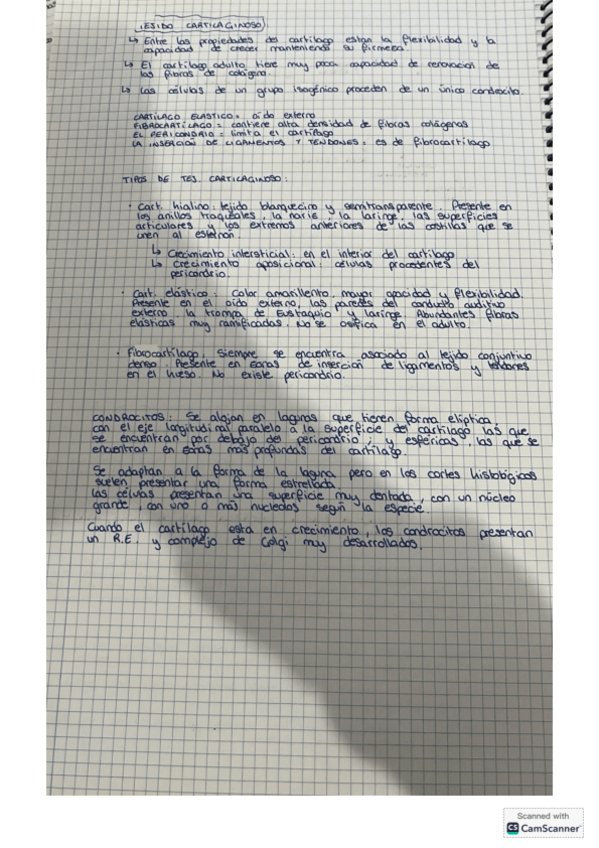 TEJIDO CARTILAGINOSO
↳ Entre las propiedades del cartílago estan la flexibilidad y la
capacidad de crecer manteniendo su firmeza.
↳ El cartílago adulto tiene muy poca capacidad de renovación de
las fibras de colágeno.
↳ Las células de un grupo isogénico proceden de un único condrocito.
CARTÍLAGO ELASTICO = oído externo
FIBROCARTÍLAGO = contiene alta densidad de fibras colágenas
EL PERICONDRIO = limita el cartílago
LA INSERCIÓN DE LIGAMENTOS Y TENDONES = es de fibrocartílago
TIPOS DE TEJ. CARTILAGINOSO:
· Cart. hialino: tejido blanquecino y semitransparente. Presente en
los anillos traqueales, la nariz, la laringe, las superficies
articulares y los extremos anteriores de las costillas que se
unen al esternón.
↳ Crecimiento intersticial: en el interior del cartílago
↳ Crecimiento aposicional: células procedentes del
pericondrio.
· Cart. elástico: Color amarillento, mayor opacidad y flexibilidad.
Presente en el oído externo, las paredes del conducto auditivo
externo, la trompa de Eustaquio y laringe. Abundantes fibras
elásticas muy ramificadas. No se osifica en el adulto.
· Fibrocartílago. Siempre se encuentra asociado al tejido conjuntivo
denso. Presente en zonas de inserción de ligamentos y tendones
en el hueso. No existe pericondrio.
CONDROCITOS: Se alojan en lagunas que tienen forma elíptica,
con el eje longitudinal paralelo a la superficie del cartílago las que
se encuentran por debajo del pericondrio; y esféricas, las que se
encuentran en zonas más profundas del cartílago.
Se adaptan a la forma de la laguna pero en los cortes histológicos
suelen presentar una forma estrellada.
Las células presentan una superficie muy dentada, con un núcleo
grande, con uno o más nucleolos según la especie.
Cuando el cartílago esta en crecimiento, los condrocitos presentan
un R.E. y complejo de Golgi muy desarrollados.
Scanned with
CS CamScanner